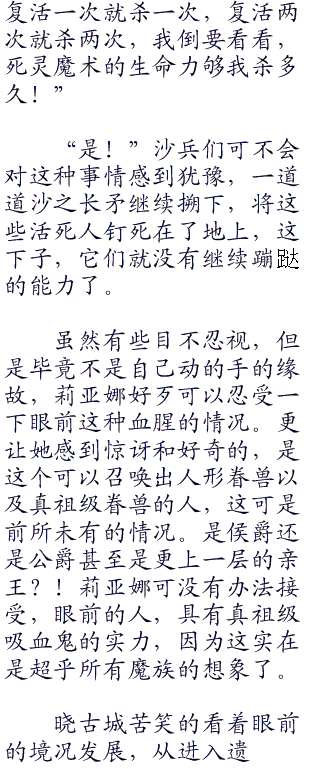 复活一次就杀一次，复活两
次就杀两次，我倒要看看，
死灵魔术的生命力够我杀多
久！”
“是！”沙兵们可不会
对这种事情感到犹豫，一道
道沙之长矛继续捅下，将这
些活死人钉死在了地上，这
下子，它们就没有继续蹦跶
的能力了。
虽然有些目不忍视，但
是毕竟不是自己动的手的缘
故，莉亚娜好歹可以忍受一
下眼前这种血腥的情况。更
让她感到惊讶和好奇的，是
这个可以召唤出人形眷兽以
及真祖级眷兽的人，这可是
前所未有的情况。是侯爵还
是公爵甚至是更上一层的亲
王？！莉亚娜可没有办法接
受，眼前的人，具有真祖级
吸血鬼的实力，因为这实在
是超乎所有魔族的想象了。
晓古城苦笑的看着眼前
的境况发展，从进入遗